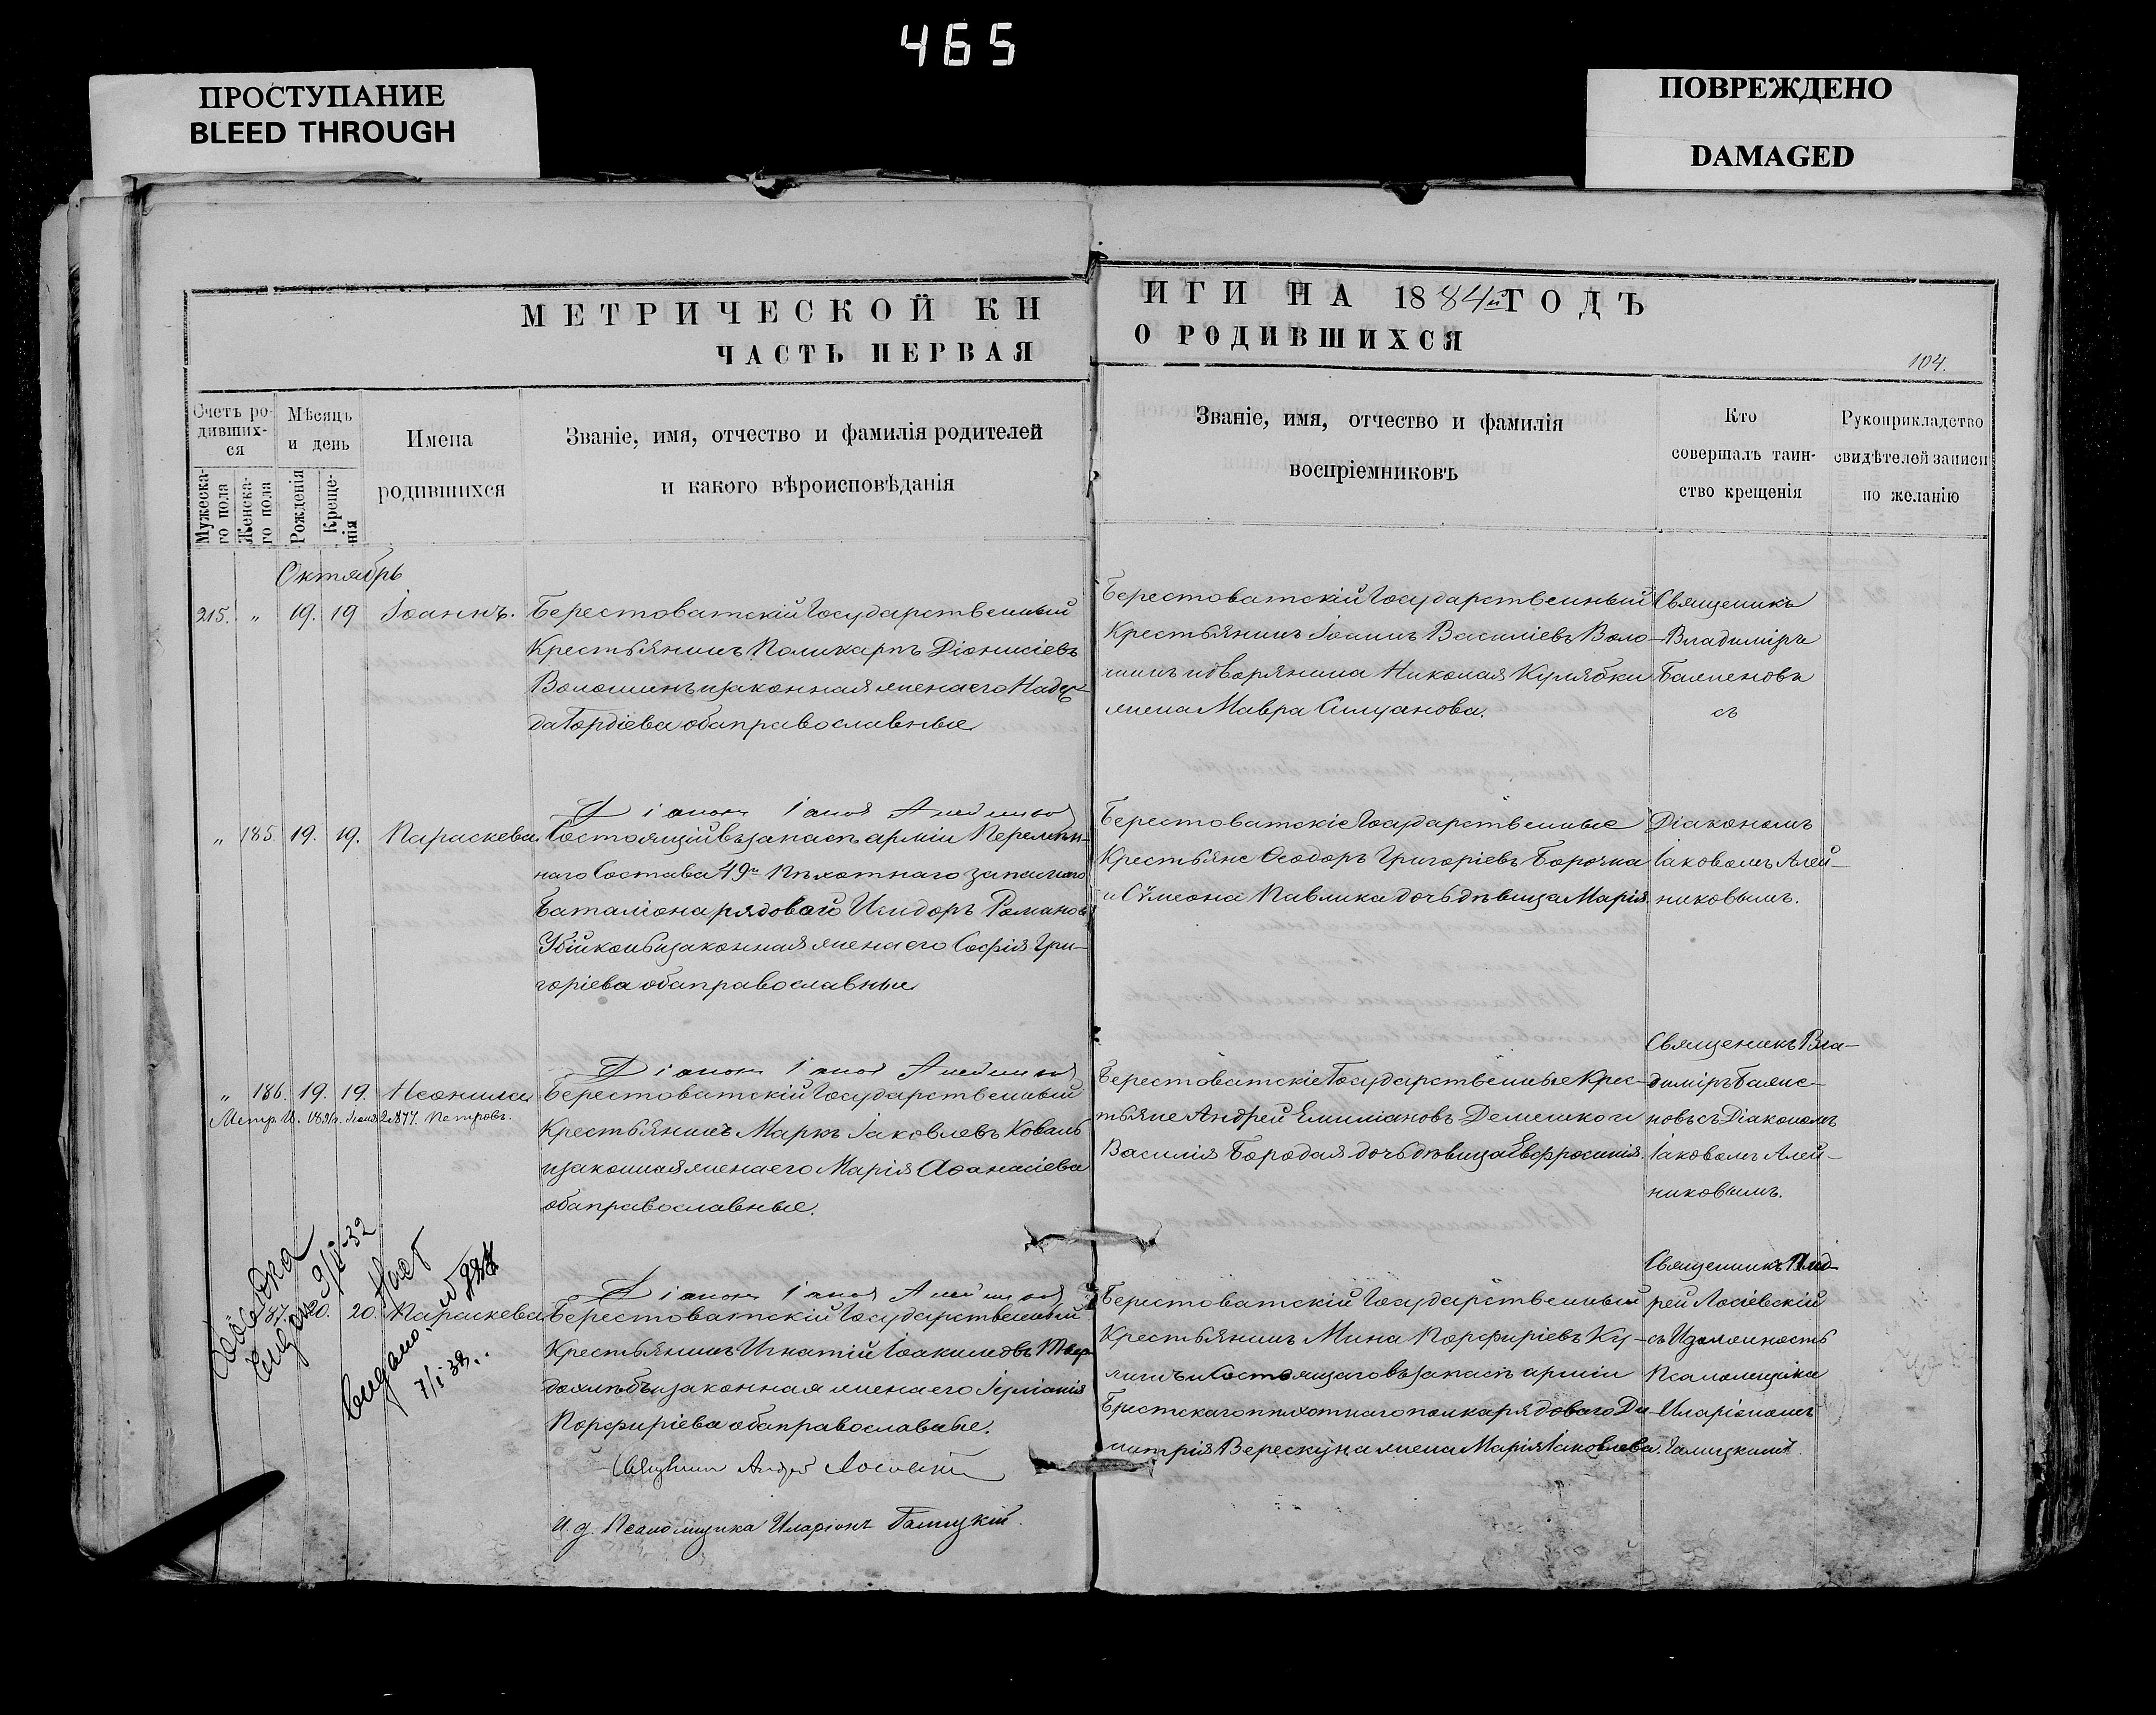 465
ПРОСТУПАНИЕ
BLEED THROUGH
ПОВРЕЖДЕНО
DAMAGED
МЕТРИЧЕСКОЙ КН
ЧАСТЬ ПЕРВАЯ
ИГИ НА 1884й ГОДЪ
О РОДИВШИХСЯ
104.
Счетъ ро-
дивших-
ся
Мужеска-
го пола
Женска-
го пола
Мѣсяцъ
и день
Рожденія
Креще-
нія
Имена
родившихся
Званіе, имя, отчество и фамилія родителей
и какого вѣроисповѣданія
Званіе, имя, отчество и фамилія
воспріемниковъ
Кто
совершалъ таин-
ство крещенія
Рукоприкладство
свидѣтелей записи
по желанію
Октябрь
215. " 19. 19 Іоаннъ.
Берестоватскій Государственный
Крестьянинъ Поликарпъ Діонисіевъ
Волошинъ и законная жена его Надеж-
да Гордіева оба православные
Діаконъ Іаковъ Алейниковъ
Берестоватскій Государственный
Крестьянинъ Іоаннъ Василіевъ Воло-
шинъ и дворянина Николая Кулябки
жена Мавра Симуанова.
Священникъ
Владиміръ
Баженовъ
съ
" 185. 19. 19. Параскева
Состоящій въ запасѣ арміи Перемѣн-
наго Состава 49го Пѣхотнаго запаснаго
Баталіона рядовой Исидоръ Романовъ
Убійконь и законная жена его Софія Гри-
горіева оба православные
Діаконъ Іаковъ Алейниковъ
Берестоватскіе Государственные
Крестьяне Ѳеодоръ Григоріевъ Борочка
и Сѵмеона Павлика дочь дѣвица Марія
Діакономъ
Іаковомъ Алей-
никовымъ.
" 186. 19. 19. Неонила
Берестоватскій Государственный
Крестьянинъ Маркъ Іаковлевъ Коваль
и законная жена его Марія Аѳанасіева
оба православные.
Діаконъ Іаковъ Алейниковъ
Берестоватскіе Государственные Крес-
тьяне Андрей Емиліановъ Демешко и
Василія Бородая дочь дѣвица Евфросинія.
Священикъ Вла-
диміръ Баже-
новъ съ Діакономъ
Іаковомъ Алей-
никовымъ.
187. 20. 20. Параскева
7/I 38.
Берестоватскій Государственный
Крестьянинъ Игнатій Іоакимовъ Твер-
дохлѣбъ и законная жена его
Порфиріева оба православные.
Священникъ Андрей Лосіевскій
И. д. Псаломщика Иларіонъ Галицкій.
Берестоватскій Государственный
Крестьянинъ Мина Порфиріевъ Ку-
личъ и Состоящаго въ запасѣ арміи
Брестскаго пѣхотнаго полка рядоваго Ди-
митрія Верескуна жена Марія Іаковлева.
Священникъ Анд-
рей Лосіевскій
съ И. д.
Псаломщика
Иларіономъ
Галицкимъ.